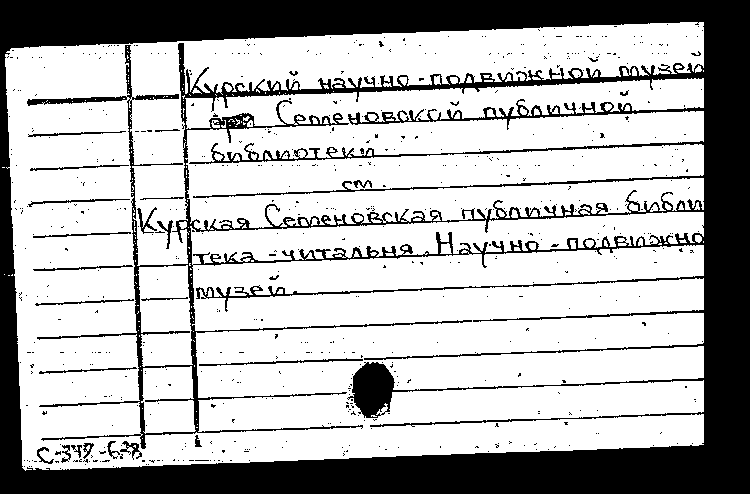 Курский научно-подвижной музей
Семеновской публичной
библиотеки
см.
Курская Семеновская публичная библи
тека-читальня. Научно-подвижно
музей.